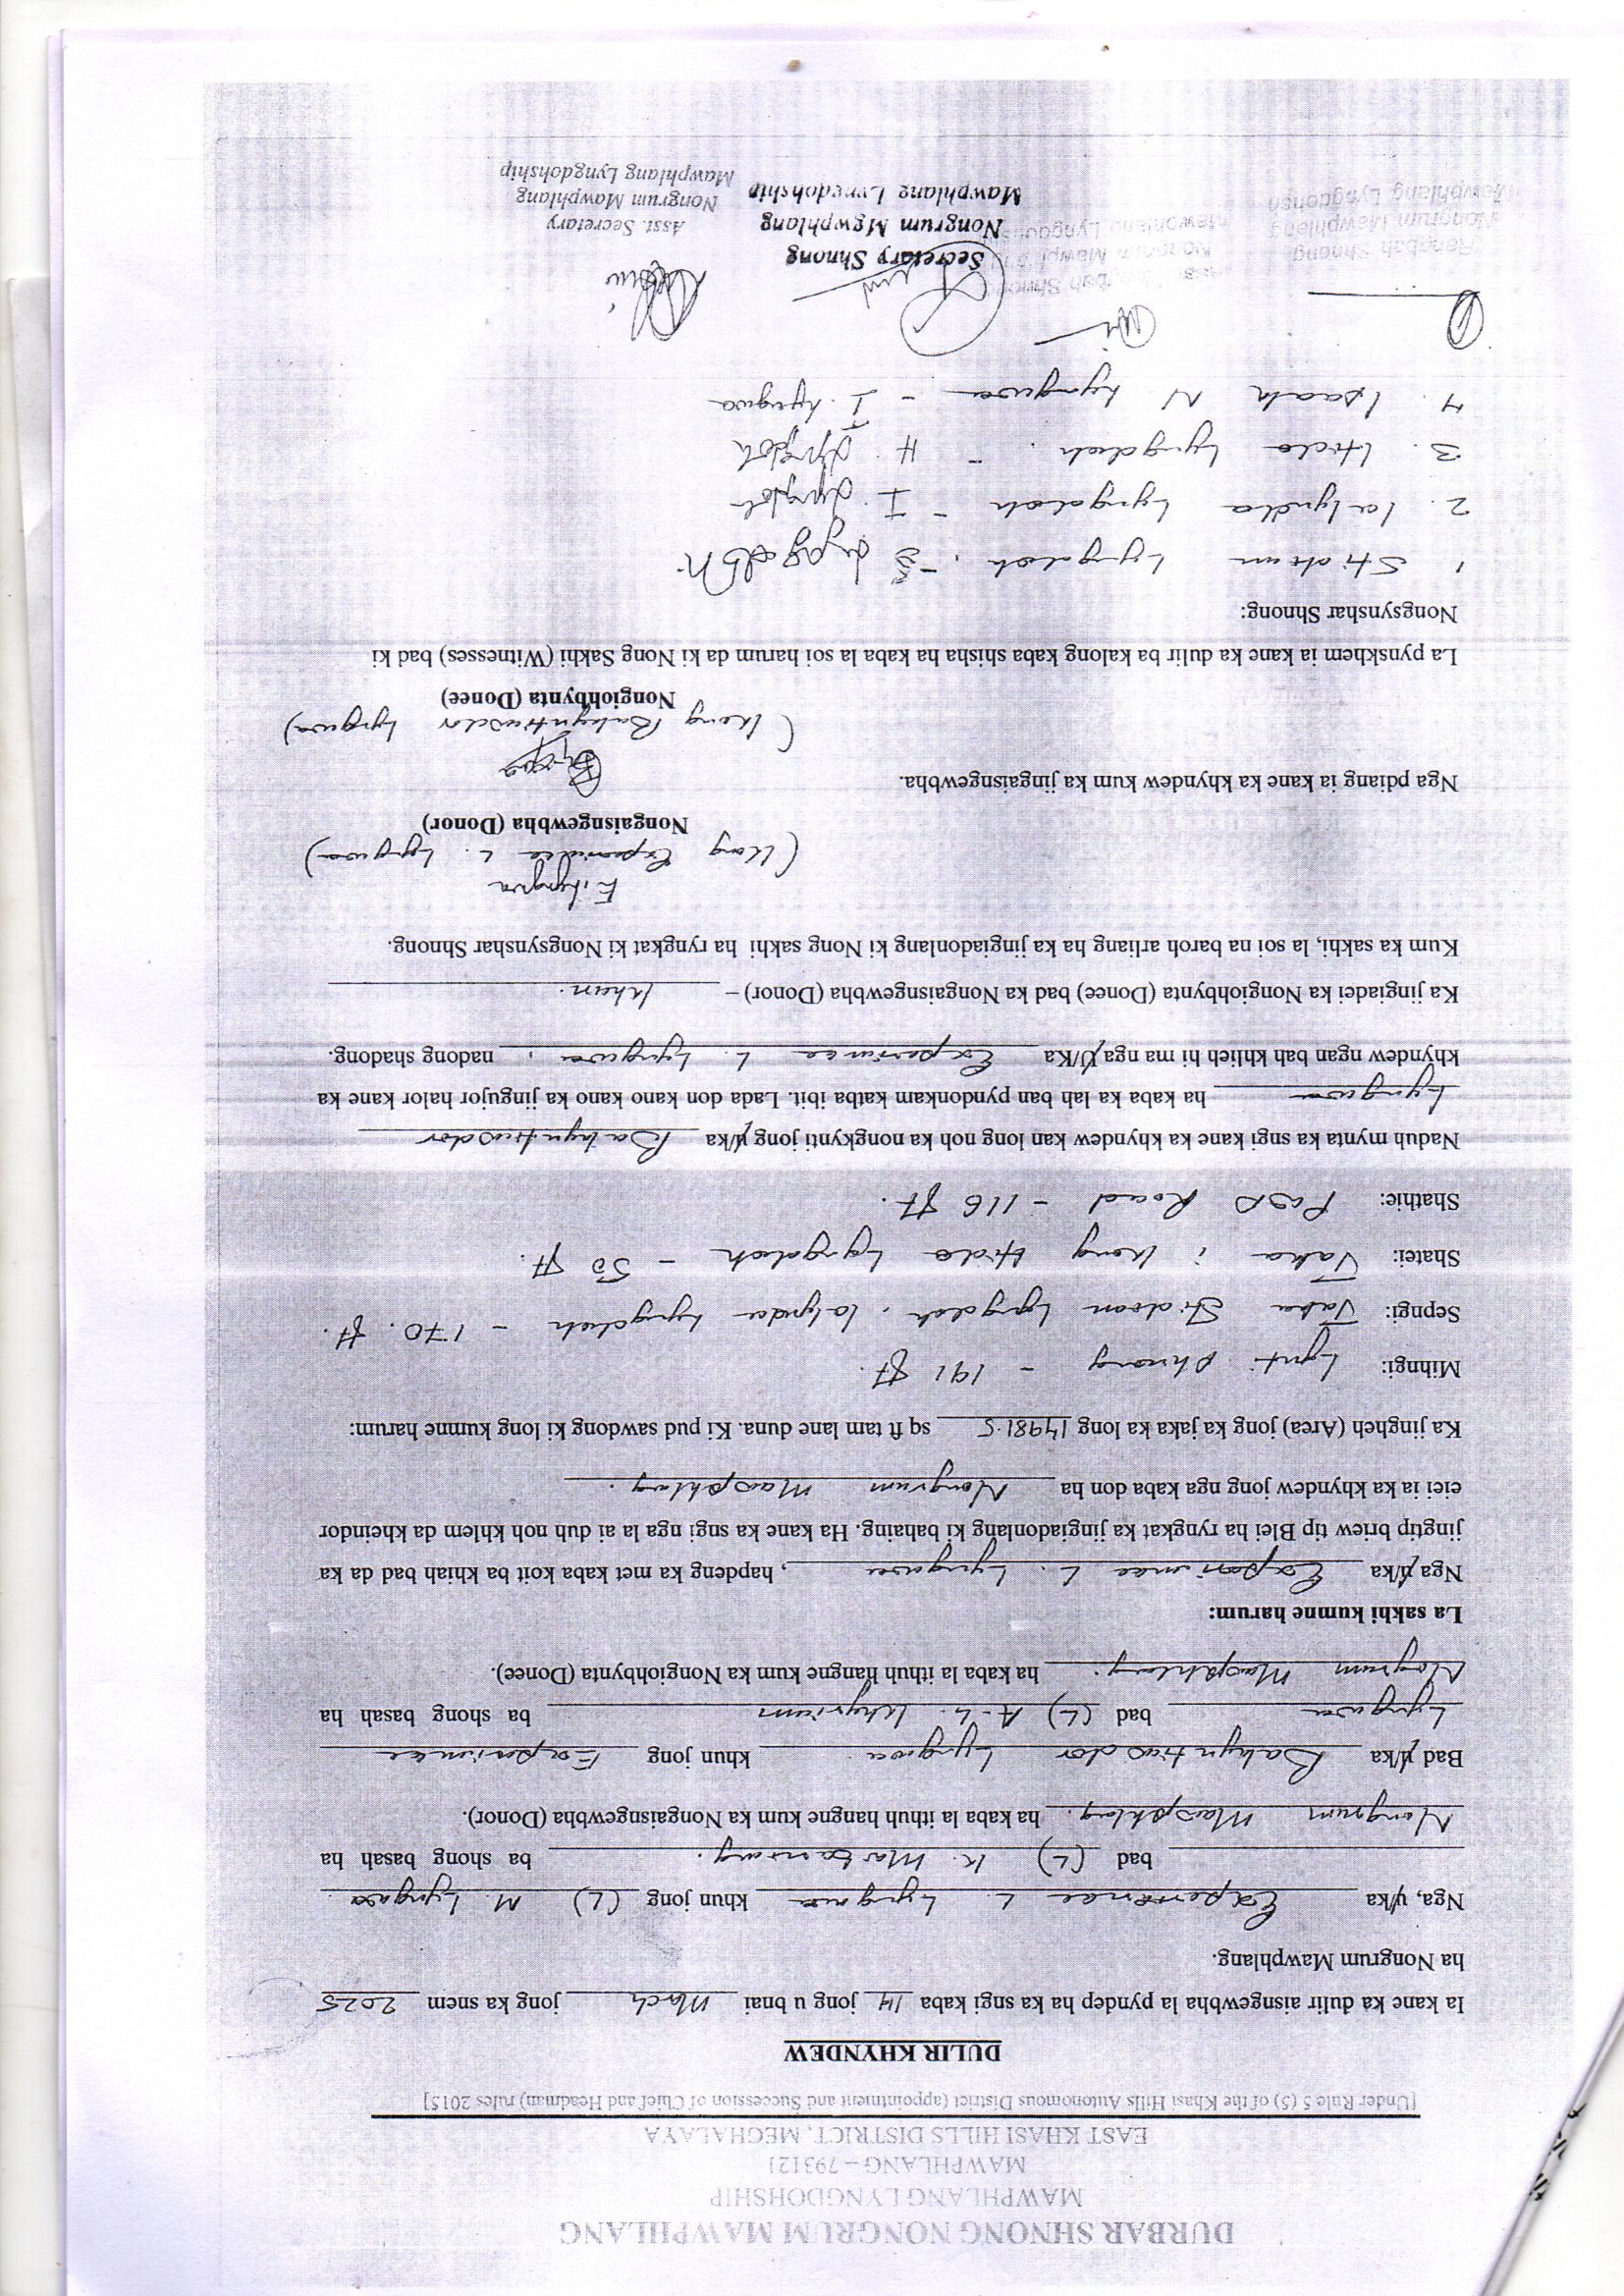 DURBAR SHNONG NONGRUM MAWPHLANG
MAWPHLANG LYNGDOHSHIP
MAWPHLANG – 793121
EAST KHASI HILLS DISTRICT, MEGHALAYA
[Under Rule 5 (5) of the Khasi Hills Autonomous District (appointment and Succession of Chief and Headman) rules 2015]
DULIR KHYNDEW
Ia kane ka dulir aisngewbha la pyndep ha ka sngi kaba 14 jong u bnai March jong ka snem 2025
ha Nongrum Mawphlang.
Nga, u/ka Experience L. Lyngwa khun jong (L) M. Lyngwa
bad (L) K. Marbaniang. ba shong basah ha
Nongrum Mawphlang. ha kaba la ithuh hangne kum ka Nongaisngewbha (Donor).
Bad u/ka Bakyntiewdor Lyngwa khun jong Experience
Lyngwa bad (L) A.L. Khyriem ba shong basah ha
Nongrum Mawphlang. ha kaba la ithuh hangne kum ka Nongiohbynta (Donee).
La sakhi kumne harum:
Nga u/ka Experience L. Lyngwa, hapdeng ka met kaba koit ba khiah bad da ka
jingtip briew tip Blei ha ryngkat ka jingiadonlang ki bahaing. Ha kane ka sngi nga la ai duh noh khlem da kheindor
eiei ia ka khyndew jong nga kaba don ha Nongrum Mawphlang.
Ka jingheh (Area) jong ka jaka ka long 14981.5 sq ft tam lane duna. Ki pud sawdong ki long kumne harum:
Mihngi: Lynti Shnong - 191 ft.
Sepngi: Jaka Stidrun Lyngdoh, Ialyndia Lyngdoh - 170. ft.
Shatei: Jaka i Kong Hida Lyngdoh - 50 ft.
Shathie: PWD Road - 116 ft.
Naduh mynta ka sngi kane ka khyndew kan long noh ka nongkynti jong u/ka Bakyntiewdor
Lyngwa ha kaba ka lah ban pyndonkam katba ibit. Lada don kano kano ka jingujor halor kane ka
khyndew ngan bah khlieh hi ma nga U/Ka Experience L. Lyngwa, nadong shadong.
Ka jingiadei ka Nongiohbynta (Donee) bad ka Nongaisngewbha (Donor) – Khun.
Kum ka sakhi, la soi na baroh arliang ha ka jingiadonlang ki Nong sakhi ha ryngkat ki Nongsynshar Shnong.
E. Lyngwa
(Kong Experience L. Lyngwa)
Nongaisngewbha (Donor)
Nga pdiang ia kane ka khyndew kum ka jingaisngewbha.
(Kong Bakyntiewdor Lyngwa)
Nongiohbynta (Donee)
La pynskhem ia kane ka dulir ba kalong kaba shisha ha kaba la soi harum da ki Nong Sakhi (Witnesses) bad ki
Nongsynshar Shnong:
1 Stidrun Lyngdoh. - S Lyngdoh.
2. Ialyndia Lyngdoh - I. Lyngdoh
3. Hida Lyngdoh. - H. Lyngdoh
4. Isaac N Lyngwa - I. Lyngwa
Rangbah Shnong
Nongrum Mawphlang
Mawphlang Lyngdohship
Nongrum Mawphlang
Mawphlang Lyngdohship
Secretary Shnong
Nongrum Mawphlang
Mawphlang Lyngdohship
Asst. Secretary
Nongrum Mawphlang
Mawphlang Lyngdohship